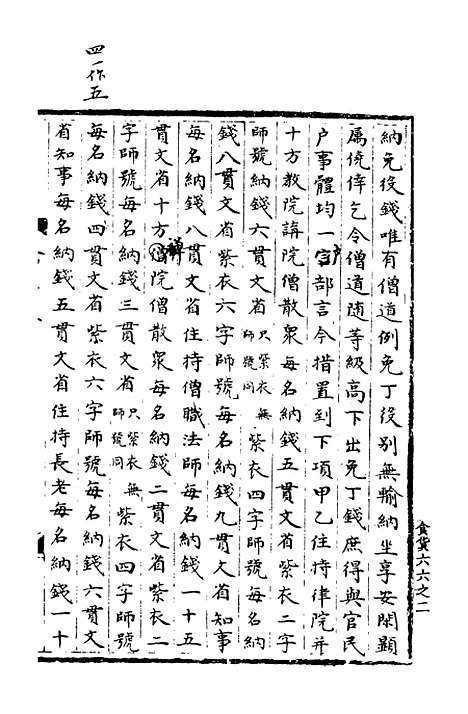 四一作五
納免役錢唯有僧道例免丁役別無輸納坐享安閑顯
屬僥倖乞令僧道隨等級高下出免丁錢庶得與官民
户事體均一戶部言今措置到下項甲乙住持律院并
十方教院講院僧散衆每名納錢五貫文省紫衣二字
師號納錢六貫文省只紫衣無師號同紫衣四字師號每名納
錢八貫文省紫衣六字師號每名納錢九貫文省知事
每名納錢八貫文省住持僧職法師每名納錢一十五
貫文省十方禪院僧散衆每名納錢二貫文省紫衣二
字師號每名納錢三貫文省只紫衣無師號同紫衣四字師號
每名納錢四貫文省紫衣六字師號每名納錢六貫文
省知事每名納錢五貫文省住持長老每名納錢一十
食貨六六之二